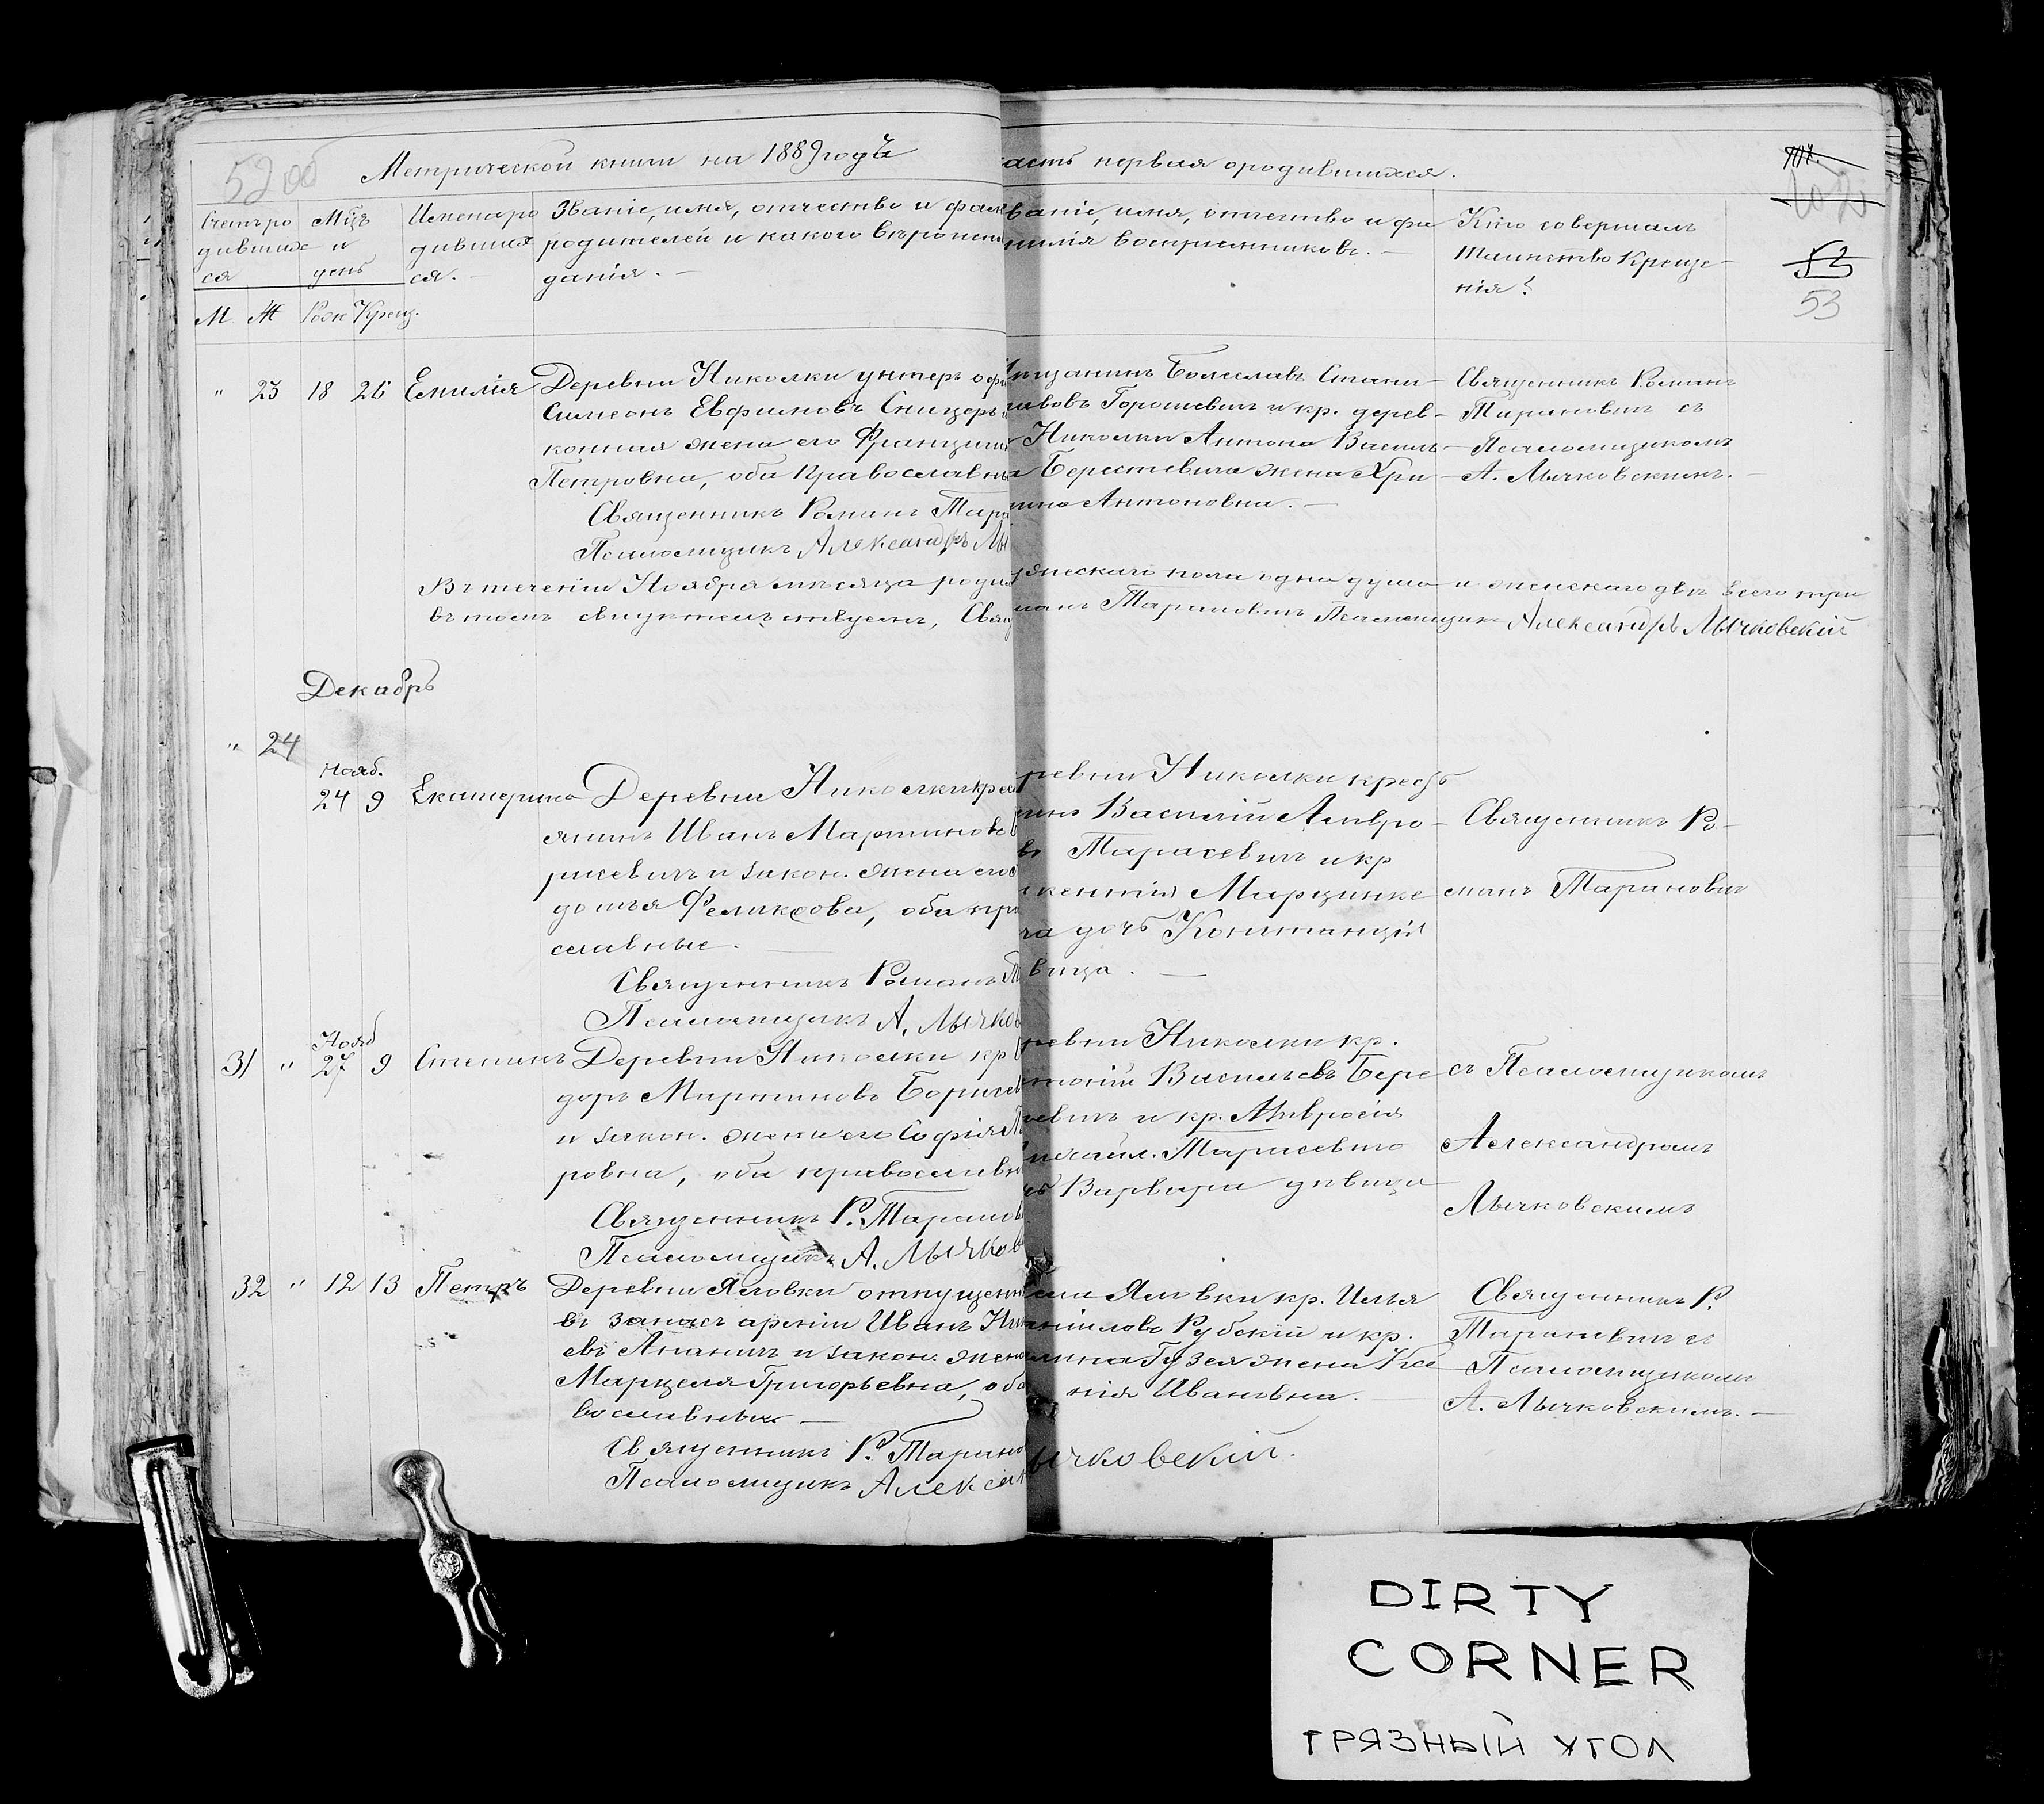 52 об
Метрической книги на 1889 годъ
асть первая о родившихся.
53
53
Счетъ ро
дивших
ся
М Ж
Мѣц.
и
день
Рож Крещ.
Имена ро
дивших
ся.
Званіе, имя, отчество и фам
родителей и какого вѣроиспо
данія.
ваніе, имя, отчество и фа
милія воспріемниковъ.
Кто совершалъ
таинство Креще-
нія?
" 23 18 26 Емилія
Деревни Николки унтеръ офи
Симеонъ Евфимовъ Сницеръ
конная жена его Францишк
Петровна, оба Православны
Священникъ Романъ Тара
Псаломщикъ Александръ Лы
ѣщанинъ Болеславъ Стани-
авовъ Горошевичъ и кр. дерев-
Николки Антона Василь-
а Берестевича жена Хри-
тина Антоновна.
Священникъ Романъ
Тарановичъ съ
Псаломщикомъ
А. Лычковскимъ.
Въ теченіи Ноября мѣсяца роди
въ томъ свидѣтельствуемъ, Свящ
ужескаго пола одна душа и женскаго двѣ всего три
манъ Тарановичъ Псаломщикъ Александръ Лычковскій
Декабрь
" 24
Нояб.
24 9 Екатерина
Деревни Николки крес
янинъ Иванъ Мартиновъ
рисевичъ и закон. жена его
докія Феликсова, оба пра
славные.
Священникъ Романъ Т
Псаломщикъ А. Лычков
ревни Николки крест
нинъ Василій Амвро-
въ Тарасевичъ и кр
кентія Марцинке
ча дочь Констанція
вица.
Священникъ Ро-
манъ Тарановичъ
Нояб
31 " 27 9 Степанъ
Деревни Николки кр
доръ Мартиновъ Борисев
и закон. жена его Софія
ровна, оба православн
Священникъ Р. Таранов
Псаломщикъ А. Лычков
ревни Николки кр.
тоній Васильевъ Бере
евичъ и кр. Амвросія
ихаил. Тарасевича
чь Варвара дѣвица
съ Псаломщикомъ
Александромъ
Лычковскимъ
32 " 12 13 Петръ
Деревни Яловки отпущенн
въ запасъ арміи Иванъ Ни
евъ Ананичъ и закон. жена
Марцеля Григорьевна, оба
вославные
Священникъ Р. Тарано
Псаломщикъ Алексан
Яловки кр. Илья
аніиловъ Рубскій и кр.
Гузея жена Ксе
нія Ивановна.
ычковскій.
Священникъ Р.
Тарановичъ съ
Псаломщикомъ
А. Лычковскимъ.
DIRTY
CORNER
ГРЯЗНЫЙ УГОЛ